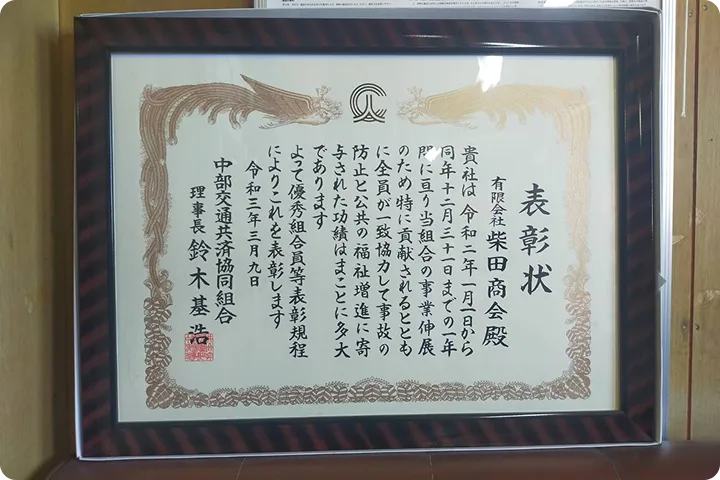 表彰状
有限会社 柴田商会 殿
貴社は 令和二年一月一日から
同年十二月三十一日までの一年
間に亘り当組合の事業伸展
のため特に貢献されるととも
に全員が一致協力して事故の
防止と公共の福祉増進に寄
与された功績はまことに多大
であります
よって優秀組合員等表彰規程
によりこれを表彰します
令和三年三月九日
中部交通共済協同組合
理事長 鈴木基浩